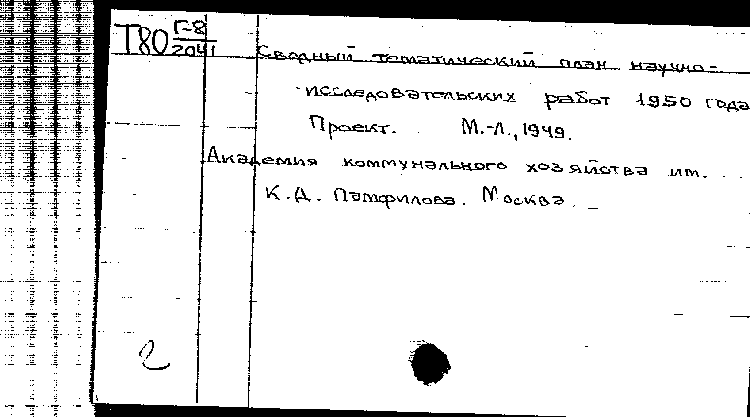 Т80 Г-8
2041
Сводный тематический план научно-
исследовательских работ 1950 года
Проект. М.-Л., 1949.
Академия коммунального хозяйства им.
К.Д. Памфилова. Москва.
2